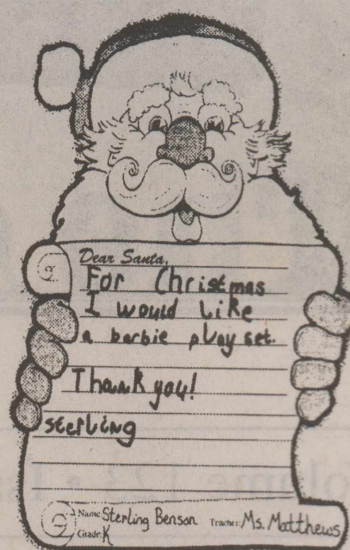 Dear Santa,
For Christmas
I would like
a barbie play set.
Thank you!
sterling
Name: Sterling Benson Teacher: Ms. Matthews
Grade: K